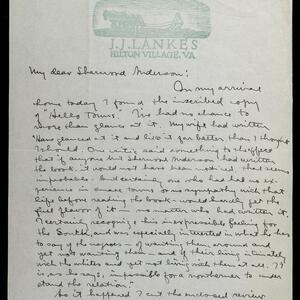 J.J. LANKES
HILTON VILLAGE, VA.
My dear Sherwood Anderson:
On my arrival
home today I found the inscribed copy
of "Hello Towns." I've had no chance to
more than glance at it. My wife had written
"Have glanced at it and like it far better than I thought
I should. One critic said something to the effect
that if anyone but Sherwood Anderson had written
the book it would not have been noticed. That seems
improbable. But certainly one who had had no ex-
perience in small towns or no sympathy with that
life before reading the book would hardly get the
full flavor of it — no matter who had written it.
I certainly recognize his irrepressible feeling for
the South, and was especially interested in what he has
to say of the negroes — of wanting them around and
yet not wanting them and of their living intimately
with the whites and yet not living with them at all. It
is, as he says, impossible for a northerner to under-
stand the relation."
As it happened I cut the enclosed review